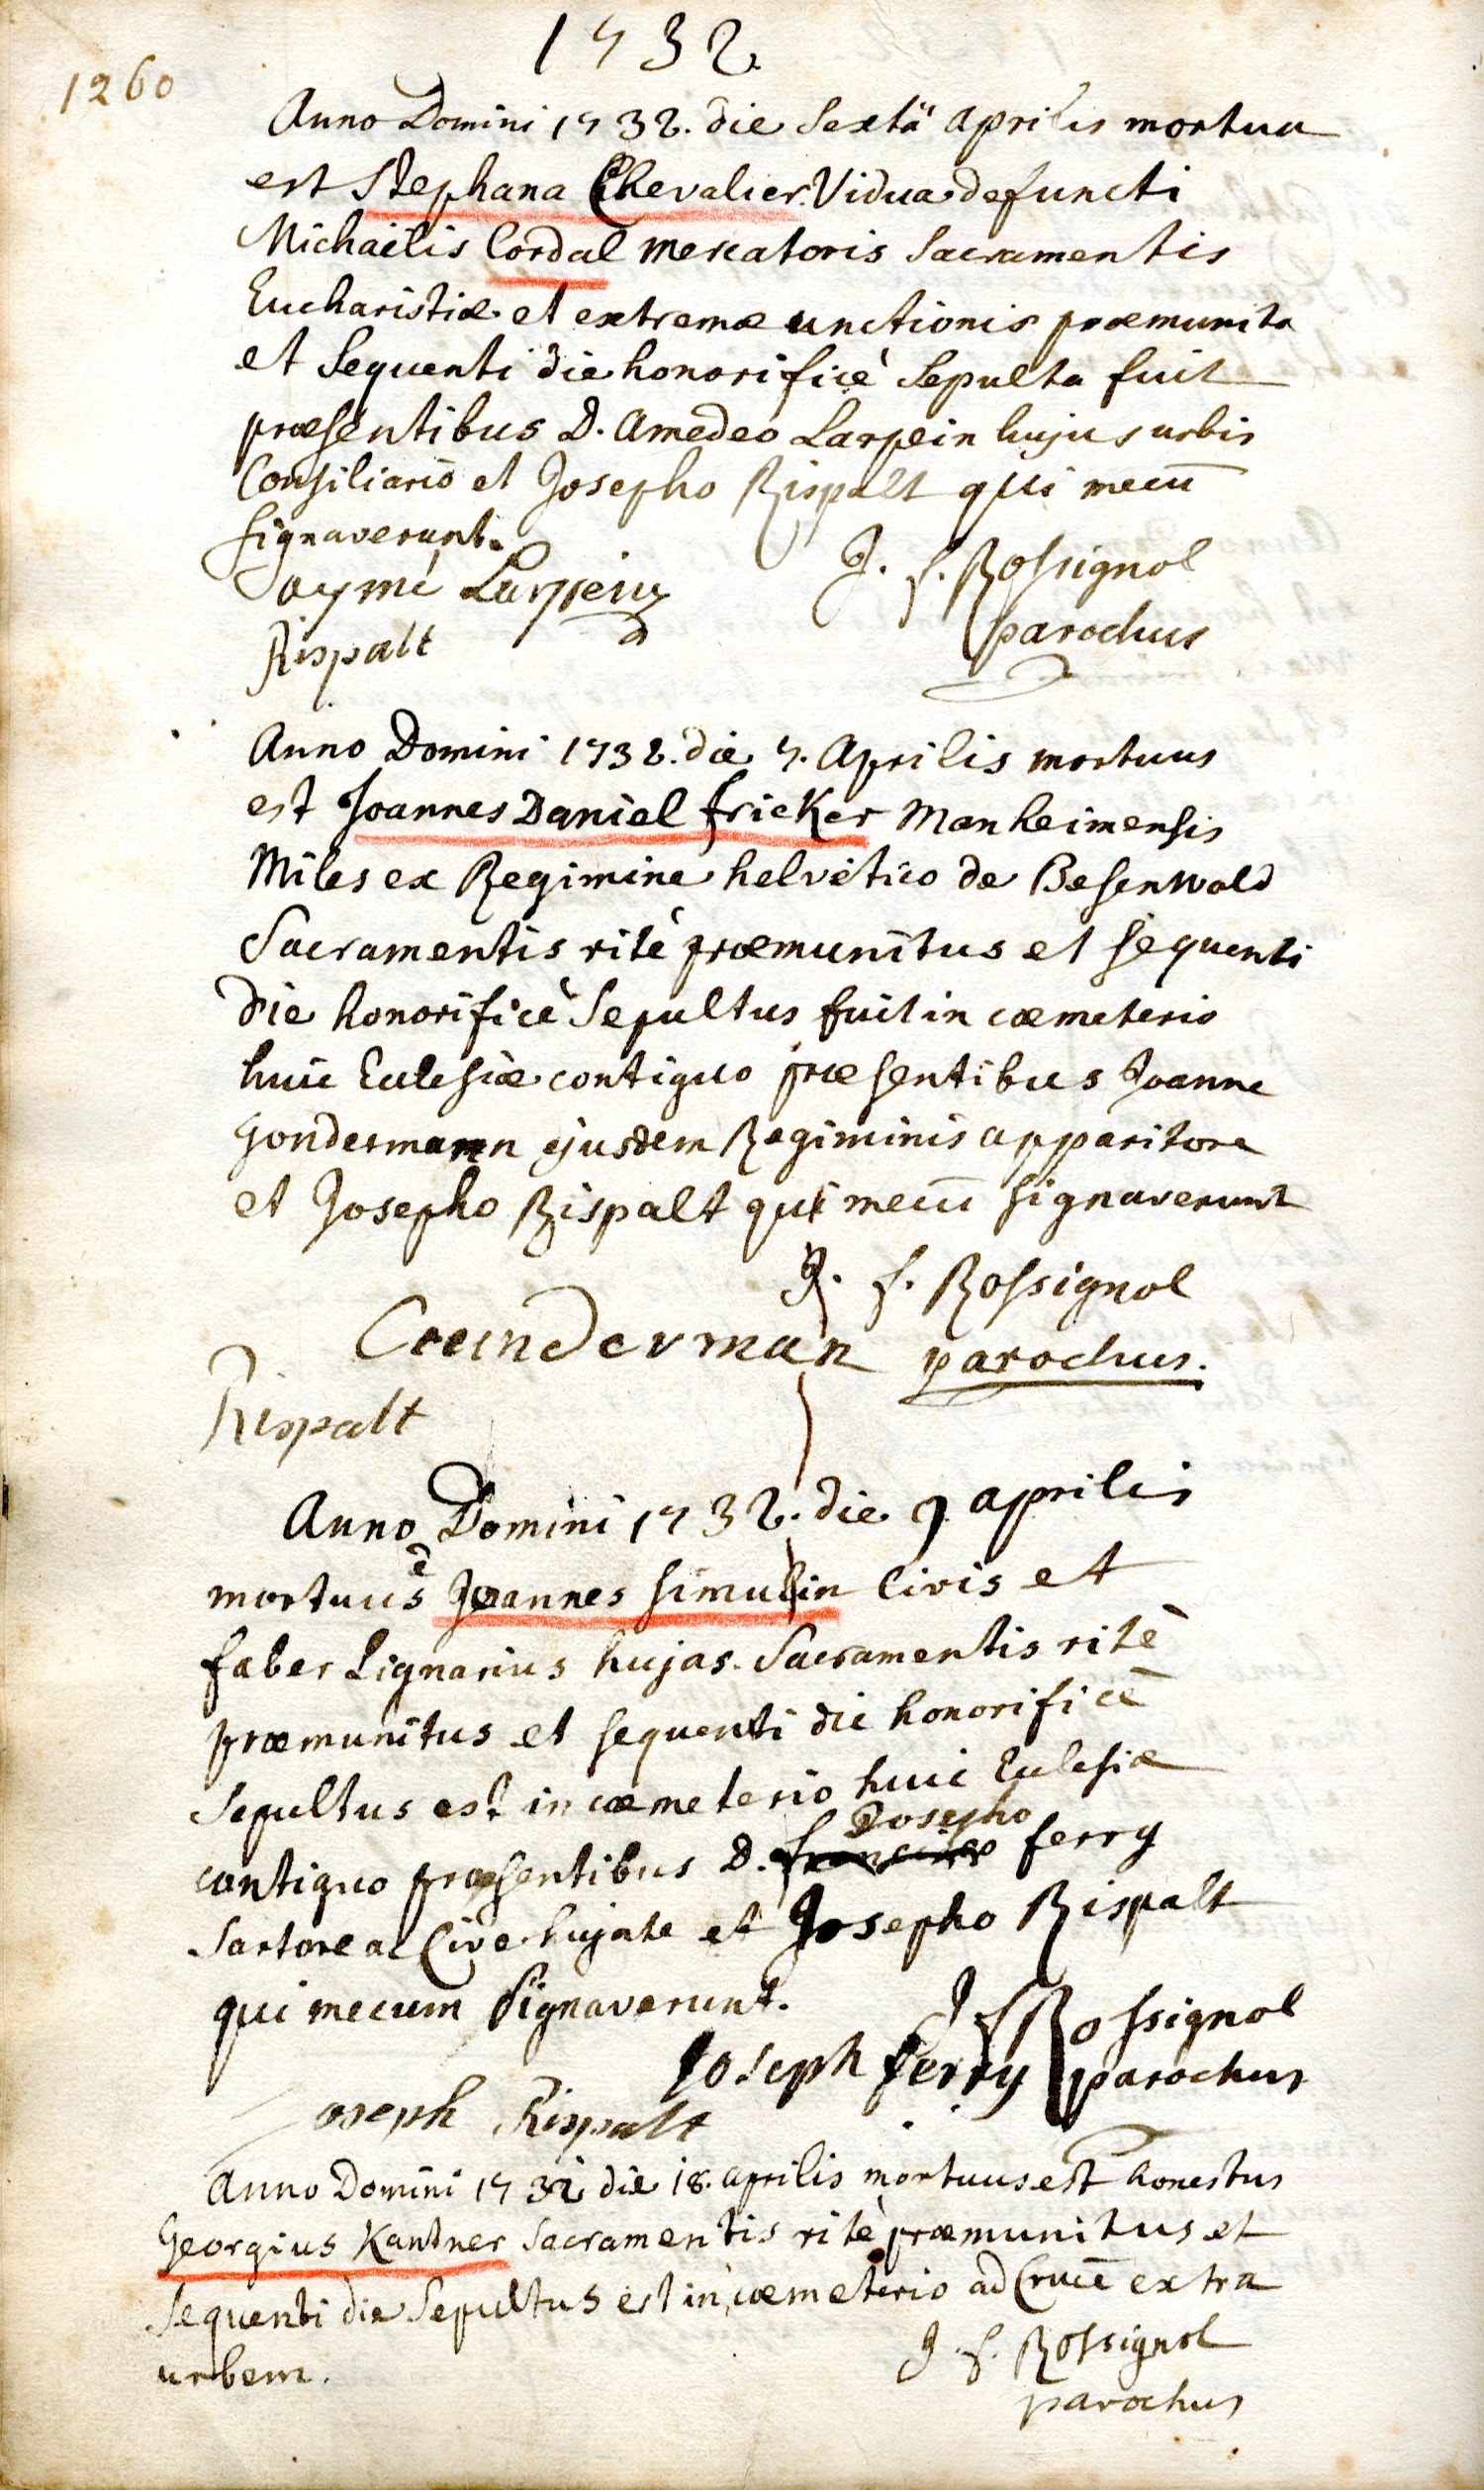 1732
1260
Anno Domini 1732. die Sextâ aprilis mortua
est Stephana Chevalier Vidua defuncti
Michaëlis Cordal mercatoris Sacramentis
Eucharistiæ et extremæ unctionis præmunita
et Sequenti die honorificè Sepulta fuit
præsentibus D. Amedeo Larpein hujus urbis
Consiliario et Josepho Rispalt qui mecū
Signaverunt.
aymé Larpein
J. f. Rossignol
parochus
Rispalt
Anno Domini 1732. die 7. Aprilis mortuus
est Joannes Daniel fricker Manheimensis
Miles ex Regimine helvetico de Besenwald
Sacramentis ritè præmunitus et sequenti
die honorificè Sepultus fuit in cæmeterio
huic Ecclesiæ contiguo præsentibus Joanne
Gondermann ejusdem Regiminis apparitore
et Josepho Rispalt qui mecū signaverunt
J. f. Rossignol
parochus.
Rispalt
Anno Domini 1732. die 9 aprilis
mortuus ē Joannes simulin Civis et
faber Lignarius hujas. Sacramentis ritè
præmunitus et sequenti die honorificè
Sepultus est in cæmeterio huic Ecclesiæ
contiguo præsentibus D. Josepho ferry
Sartore ac Cive hujate et Josepho Rispalt
qui mecum Signaverunt.
J f Rossignol
Joseph ferry parochus
Joseph Rispalt
Anno Domini 1732 die 18. aprilis mortuus est honestus
Georgius Kantner Sacramentis ritè præmunitus et
Sequenti die Sepultus est in cæmeterio ad Crucē extra
urbem.
J. f. Rossignol
parochus